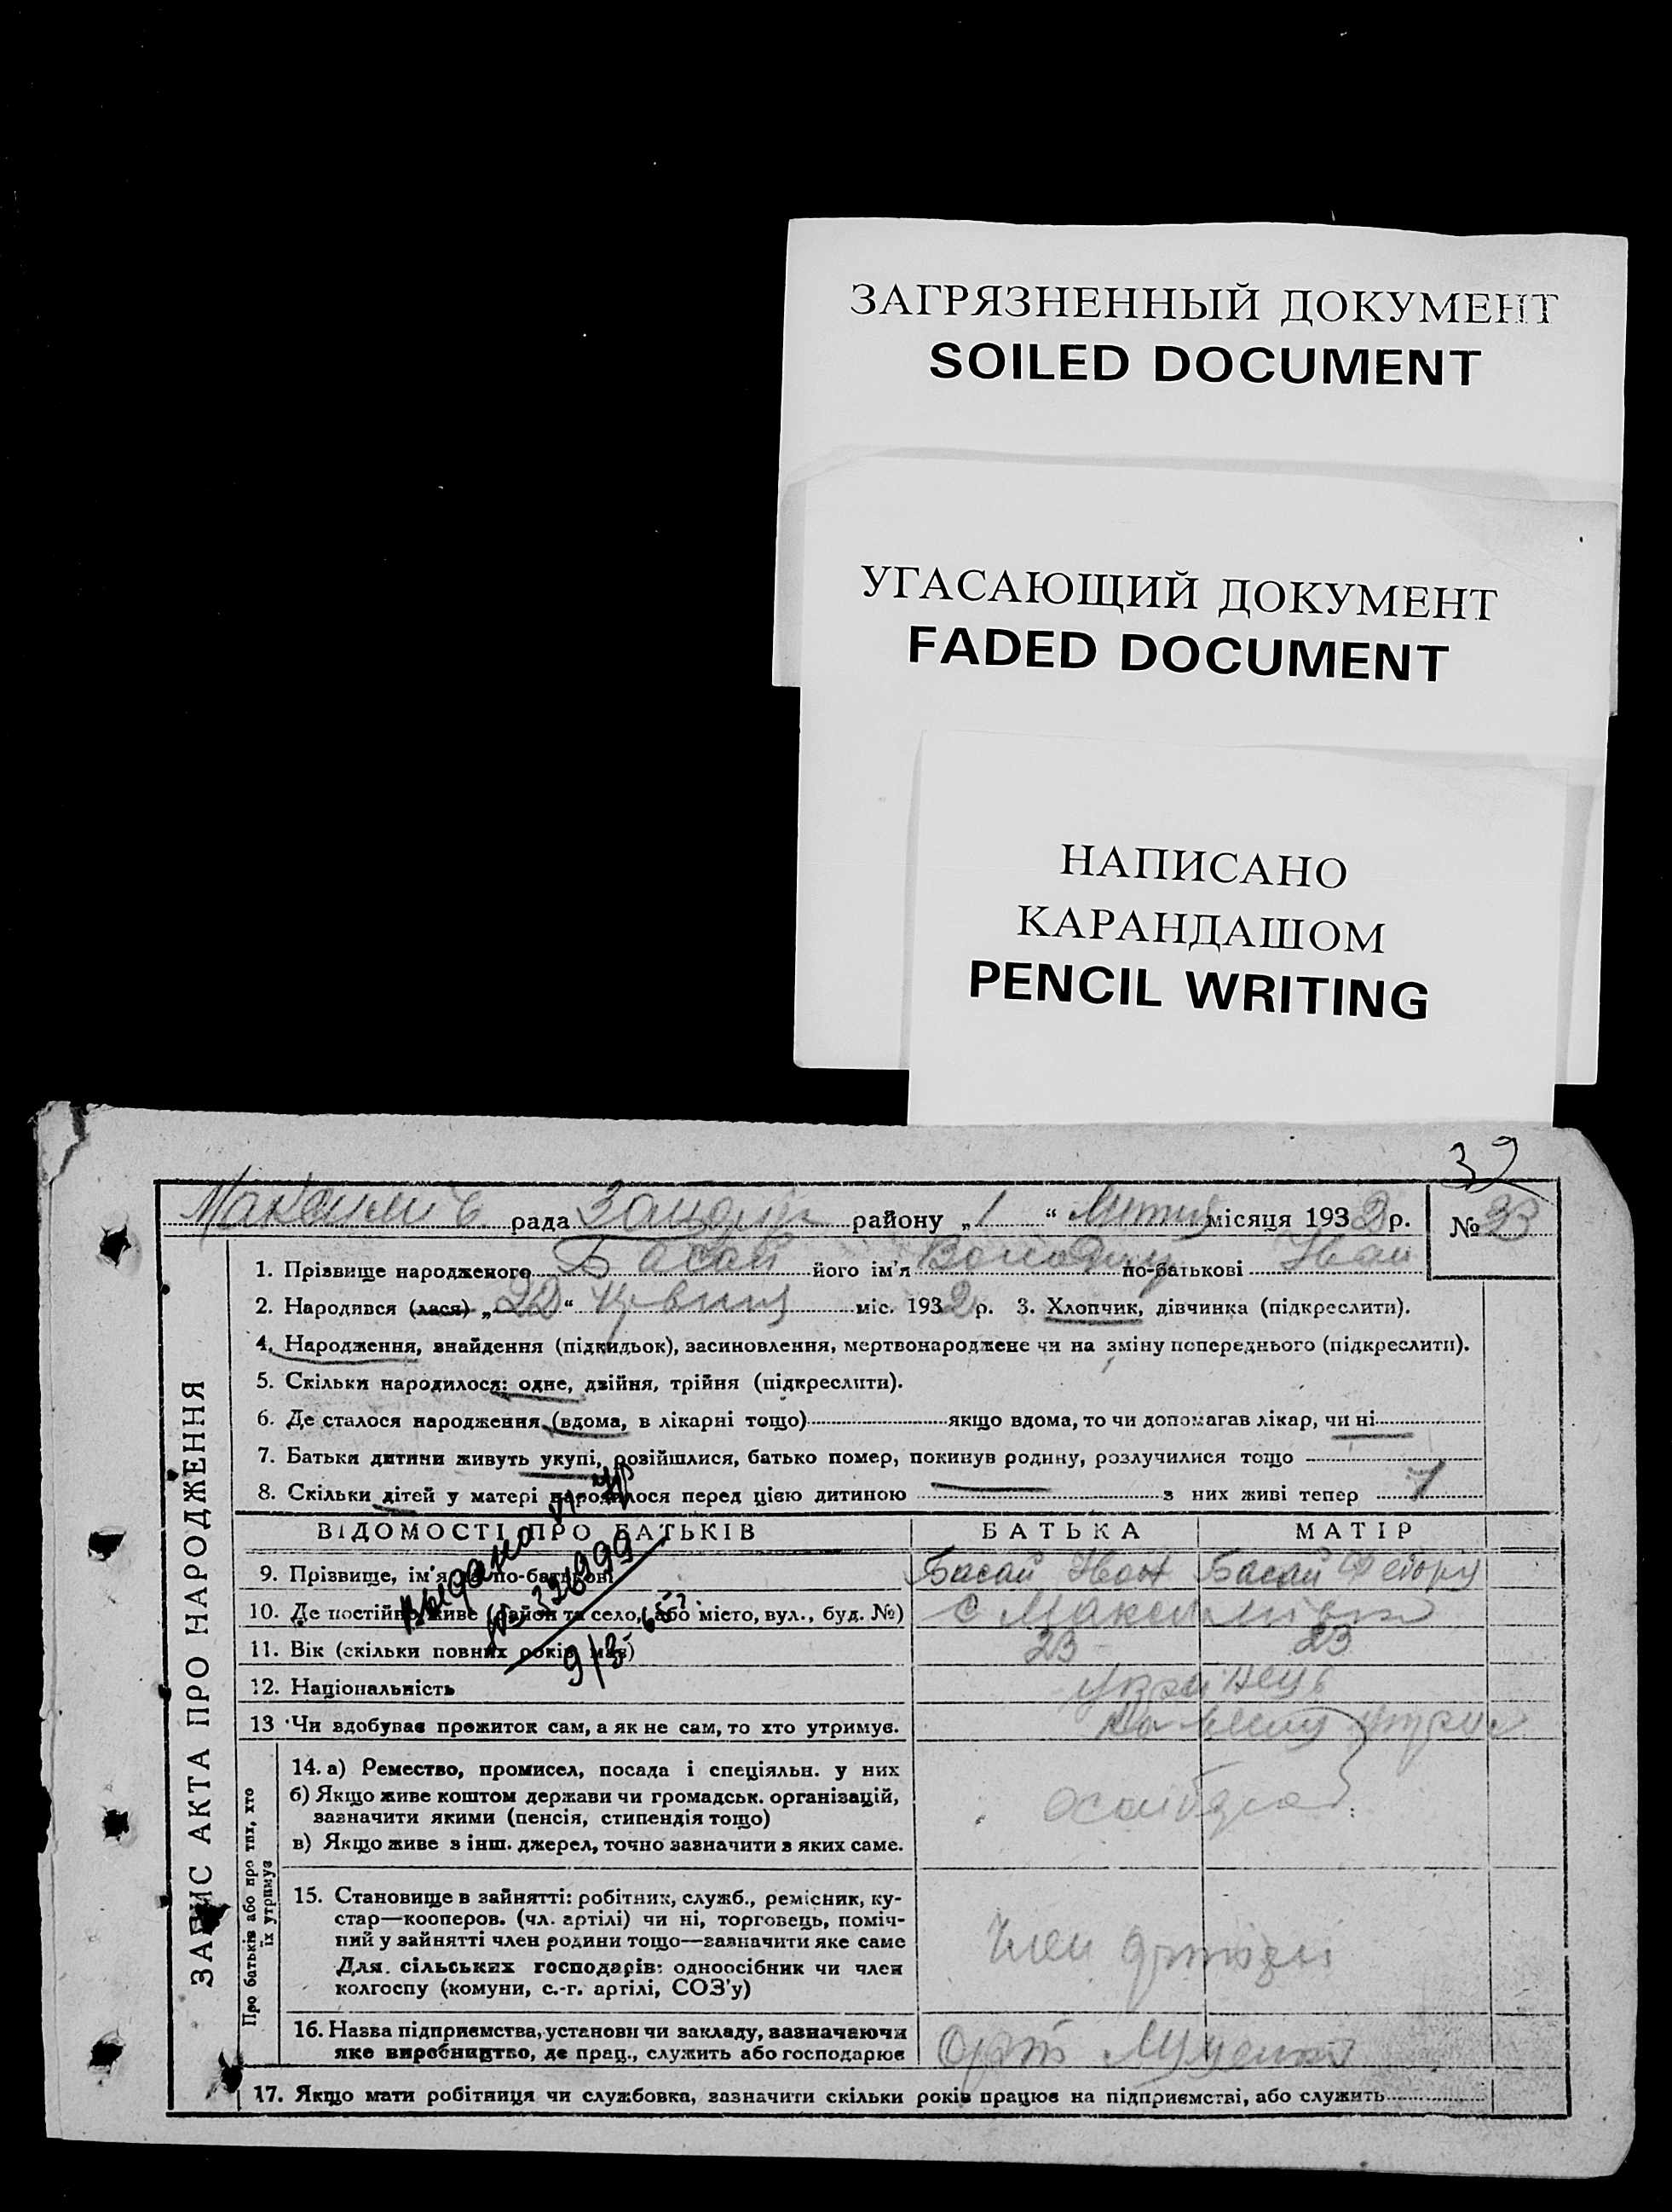 ЗАГРЯЗНЕННЫЙ ДОКУМЕНТ
SOILED DOCUMENT
УГАСАЮЩИЙ ДОКУМЕНТ
FADED DOCUMENT
НАПИСАНО
КАРАНДАШОМ
PENCIL WRITING
32
рада району „1“ місяця 1932 р. №
ЗАПИС АКТА ПРО НАРОДЖЕННЯ
1. Прізвище народженого Басай його ім'я по-батькові Иван
2. Народився (лася) „22“ міс. 1932 р. 3. Хлопчик, дівчинка (підкреслити).
4. Народження, знайдення (підкидьок), засиновлення, мертвонароджене чи на зміну попереднього (підкреслити).
5. Скільки народилося: одне, двійня, трійня (підкреслити).
6. Де сталося народження (вдома, в лікарні тощо) якщо вдома, то чи допомагав лікар, чи ні
7. Батьки дитини живуть укупі, розійшлися, батько помер, покинув родину, розлучилися тощо
8. Скільки дітей у матері народилося перед цією дитиною з них живі тепер
ВІДОМОСТІ ПРО БАТЬКІВ БАТЬКА МАТІР
9. Прізвище, ім'я по-батькові Басай Иван Басай
10. Де постійно живе (район та село, або місто, вул., буд. №) с
11. Вік (скільки повних років має) 23 23
12. Національність
13. Чи здобуває прожиток сам, а як не сам, то хто утримує.
Про батьків або про тих, хто
їх утримує
14. а) Ремество, промисел, посада і спеціяльн. у них
б) Якщо живе коштом держави чи громадськ. організацій,
зазначити якими (пенсія, стипендія тощо)
в) Якщо живе з інш. джерел, точно зазначити з яких саме.
15. Становище в зайнятті: робітник, служб., ремісник, ку-
стар—кооперов. (чл. артілі) чи ні, торговець, поміч-
ний у зайнятті член родини тощо—зазначити яке саме
Для сільських господарів: одноосібник чи член
колгоспу (комуни, с.-г. артілі, СОЗ'у)
Член
16. Назва підприємства, установи чи закладу, зазначаючи
яке виробництво, де прац., служить або господарює
17. Якщо мати робітниця чи службовка, зазначити скільки років працює на підприємстві, або служить